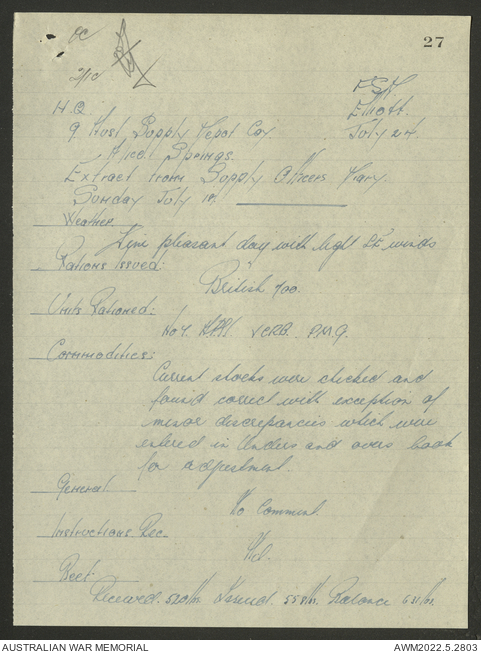 OC
27
2/10
FSD
H.Q
Elliott.
9 Aust Supply Depot Coy.
July 24
Alice Springs.
Extract from Supply Officers Diary
Sunday July
Weather
Fine pleasant day with light SE winds
Rations Issued:
British 700.
Units Rationed:
No 4. VCRB. P.M.G.
Commodities:
Current stocks were checked and
found correct with exception of
minor discrepancies which were
entered in Unders and overs book
for adjustment.
General
No Comment
Instructions Rec.
Nil.
Beef.
Received. Issued. Balance
AUSTRALIAN WAR MEMORIAL
AWM2022.5.2803